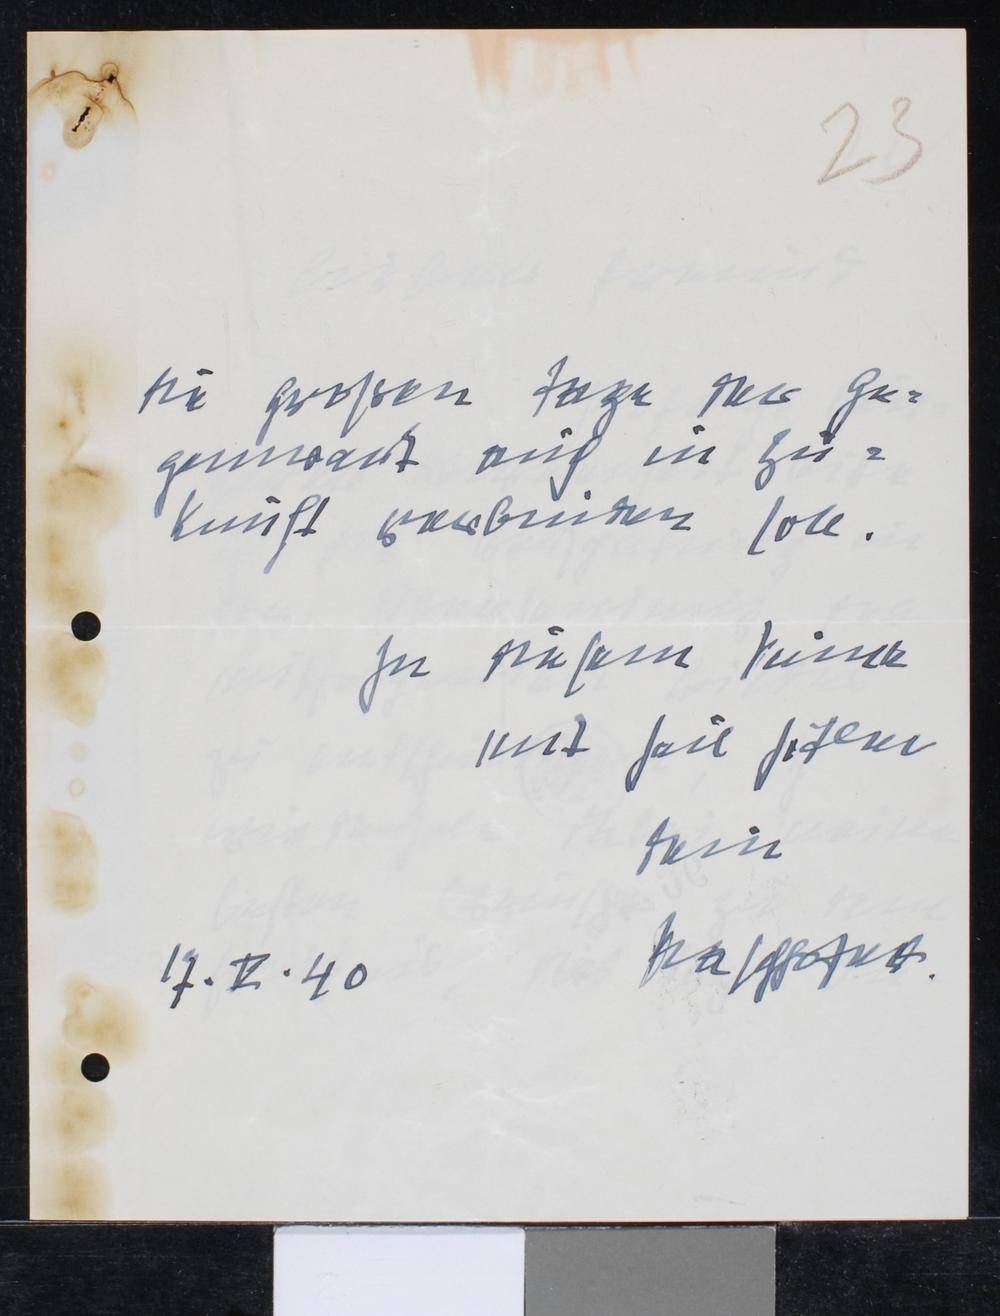 23
die großen Tage der Ge-
genwart auch in Zu-
kunft verbinden soll.
In diesem Sinne
mit Heil Hitler
Dein
17. V. 40